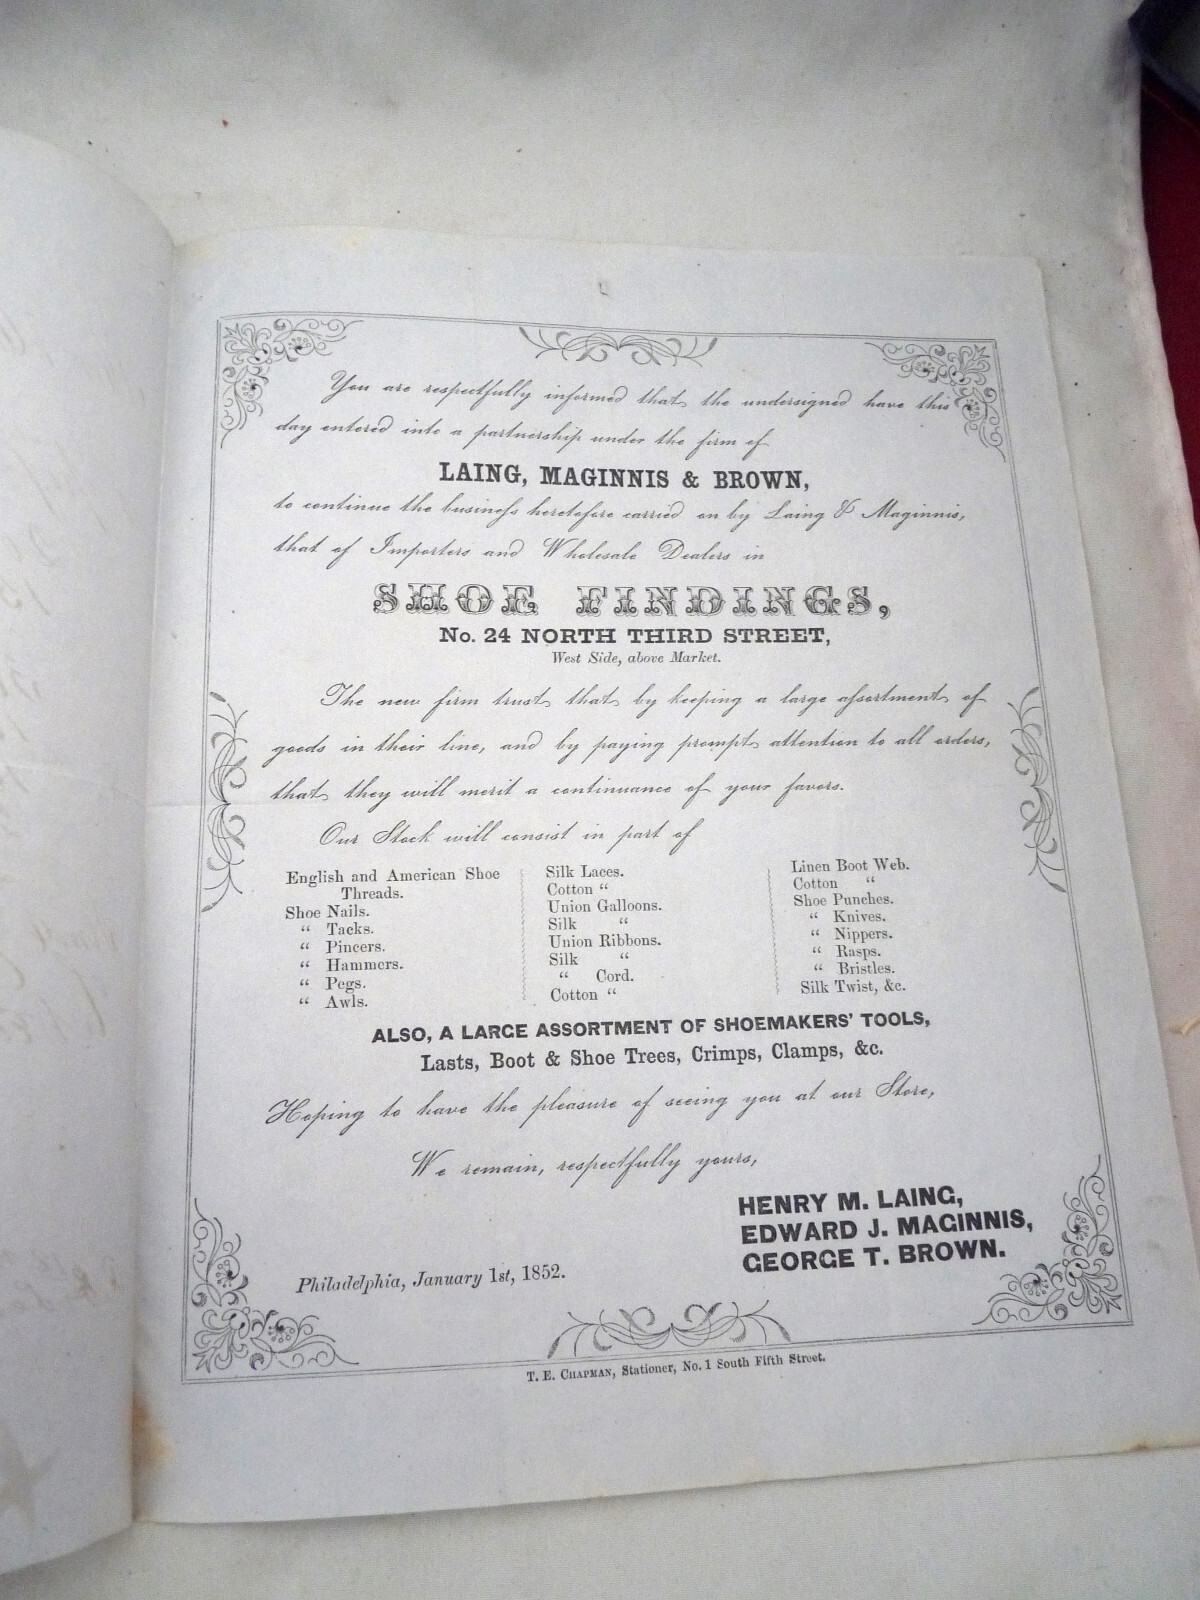 You are respectfully informed that the undersigned have this
day entered into a partnership under the firm of
LAING, MAGINNIS & BROWN,
to continue the business heretofore carried on by Laing & Maginnis,
that of Importers and Wholesale Dealers in
SHOE FINDINGS,
No. 24 NORTH THIRD STREET,
West Side, above Market.
The new firm trust that by keeping a large assortment of
goods in their line, and by paying prompt attention to all orders,
that they will merit a continuance of your favors.
Our Stock will consist in part of
English and American Shoe
Threads.
Shoe Nails.
“ Tacks.
“ Pincers.
“ Hammers.
“ Pegs.
“ Awls.
Silk Laces.
Cotton “
Union Galloons.
Silk “
Union Ribbons.
Silk “
“ Cord.
Cotton “
Linen Boot Web.
Cotton “
Shoe Punches.
“ Knives.
“ Nippers.
“ Rasps.
“ Bristles.
Silk Twist, &c.
ALSO, A LARGE ASSORTMENT OF SHOEMAKERS' TOOLS,
Lasts, Boot & Shoe Trees, Crimps, Clamps, &c.
Hoping to have the pleasure of seeing you at our Store,
We remain, respectfully yours,
HENRY M. LAING,
EDWARD J. MAGINNIS,
GEORGE T. BROWN.
Philadelphia, January 1st, 1852.
T. E. CHAPMAN, Stationer, No. 1 South Fifth Street.